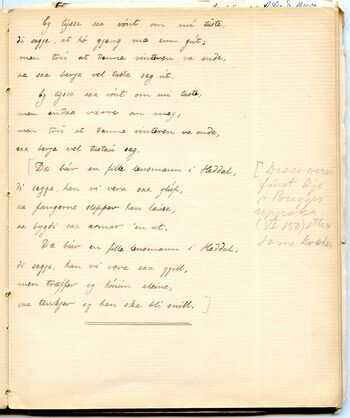 Eg tysse saa vónt om mi tuste,
di segje, at hó gjeng mæ ein gút;
men trú at denne vinteren va ende,
aa saa berja vel tusta seg ut.
Eg tysse saa vónt om mi tuste,
men endaa værre om meg,
men trú at denne vinteren va ende,
saa berja vel tustaú seg.
[ Dæ bur ein fille lensmann i Heddal,
di segja, han vi vera saa gløp,
aa fangerne slepper han lause,
aa bygdi saa armar 'en ut.
Dæ bur ein fille lensmann i Heddal,
di segje, han vi vera saa gjill,
men træffer eg hónóm aleine,
saa tenkjer eg han ska bli snill. ]
[ Disse versi
finst ikje
i Bugges
uppskr.
(VI 150) etter
same kvede